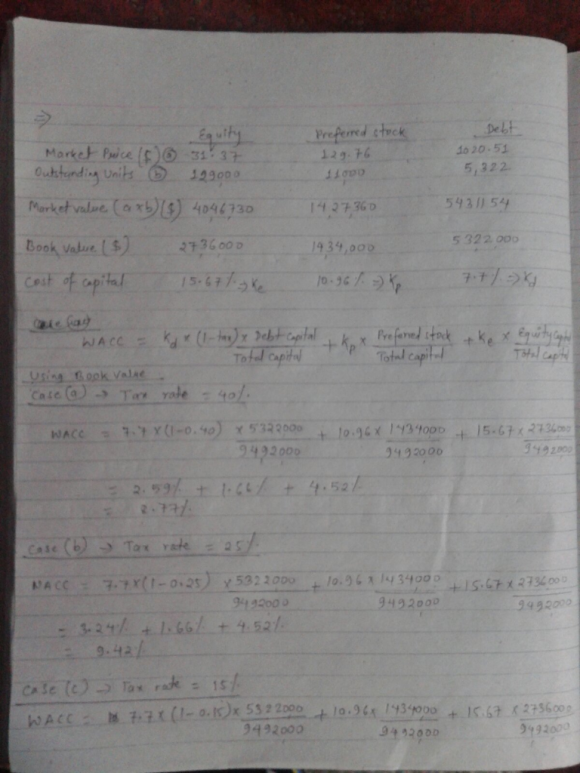 ⇒
Equity Preferred stock Debt
Market Price ($) (a) 31.37 129.76 1020.51
Outstanding Units (b) 129000 11000 5,322
Market value (a×b) ($) 4046730 1427360 5431154
Book value ($) 2736000 1434,000 5322000
Cost of capital 15.67% → Ke 10.96% ⇒ Kp 7.7% ⇒ Kd
WACC = Kd × (1-tax) × Debt capital/Total capital + Kp × Preferred stock/Total capital + Ke × Equity Capital/Total capital
Using Book value.
Case (a) → Tax rate = 40%.
WACC = 7.7 × (1-0.40) × 5322000/9492000 + 10.96 × 1434000/9492000 + 15.67 × 2736000/9492000
= 2.59% + 1.66% + 4.52%
= 8.77%
Case (b) → Tax rate = 25%.
WACC = 7.7 × (1-0.25) × 5322000/9492000 + 10.96 × 1434000/9492000 + 15.67 × 2736000/9492000
= 3.24% + 1.66% + 4.52%
= 9.42%
Case (c) → Tax rate = 15%
WACC = 7.7 × (1-0.15) × 5322000/9492000 + 10.96 × 1434000/9492000 + 15.67 × 2736000/9492000